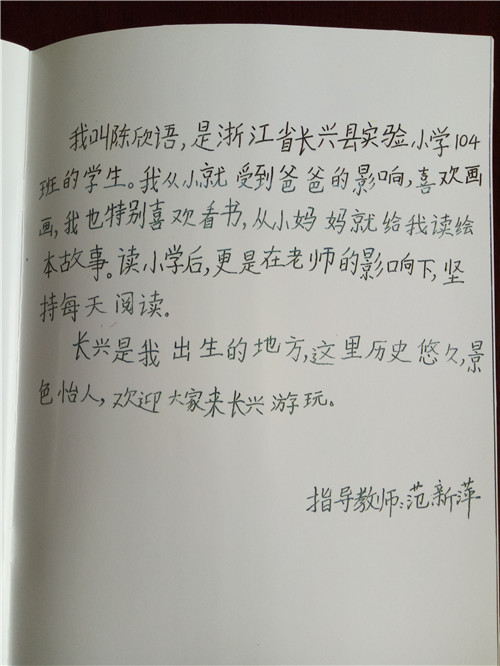 我叫陈欣语，是浙江省长兴县实验小学104
班的学生。我从小就受到爸爸的影响，喜欢画
画，我也特别喜欢看书，从小妈妈就给我读绘
本故事。读小学后，更是在老师的影响下，坚
持每天阅读。
长兴是我出生的地方，这里历史悠久，景
色怡人，欢迎大家来长兴游玩。
指导教师：范新萍